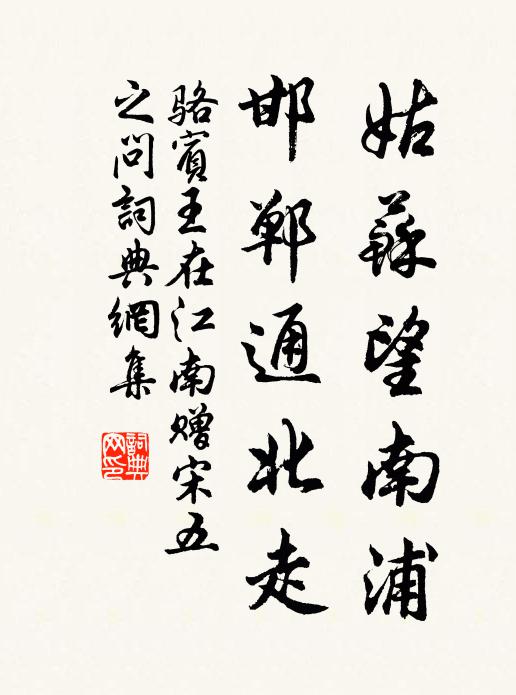 姑蘇望南浦
邯鄲通北走
駱賓王在江南贈宋五
之問詞典網集
詞典
网印